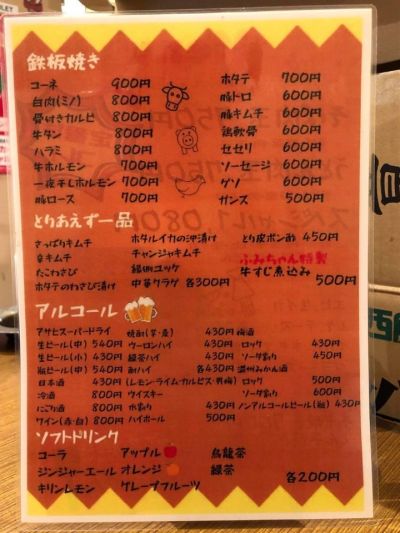 鉄板焼き
コーネ 900円
白肉(ミノ) 800円
骨付きカルビ 800円
牛タン 800円
ハラミ 800円
牛ホルモン 700円
一夜干しホルモン 700円
豚ロース 700円
ホタテ 700円
豚トロ 600円
豚キムチ 600円
鶏軟骨 600円
セセリ 600円
ソーセージ 600円
ゲソ 600円
ガンス 500円
とりあえず一品
さっぱりキムチ ホタルイカの沖漬け とり皮ポン酢 450円
辛キムチ チャンジャキムチ
たこわさび
ホタテのわさび漬け 中華クラゲ 各300円
ふみちゃん特製
牛すじ煮込み
500円
アルコール
アサヒスーパードライ
生ビール(中) 540円
生ビール(小) 430円
瓶ビール(中) 540円
日本酒 430円
冷酒 800円
にごり酒 800円
ワイン(赤・白) 800円
焼酎(芋・麦) 430円
ウーロンハイ 430円
緑茶ハイ 430円
酎ハイ 各430円
(レモン・ライム・カルピス・男梅)
ウイスキー
水割り 430円
ハイボール 500円
梅酒
ロック 430円
ソーダ割り 450円
温州みかん酒
ロック 500円
ソーダ割り 600円
ノンアルコールビール(瓶) 430円
ソフトドリンク
コーラ アップル 烏龍茶
ジンジャーエール オレンジ 緑茶
キリンレモン グレープフルーツ 各200円